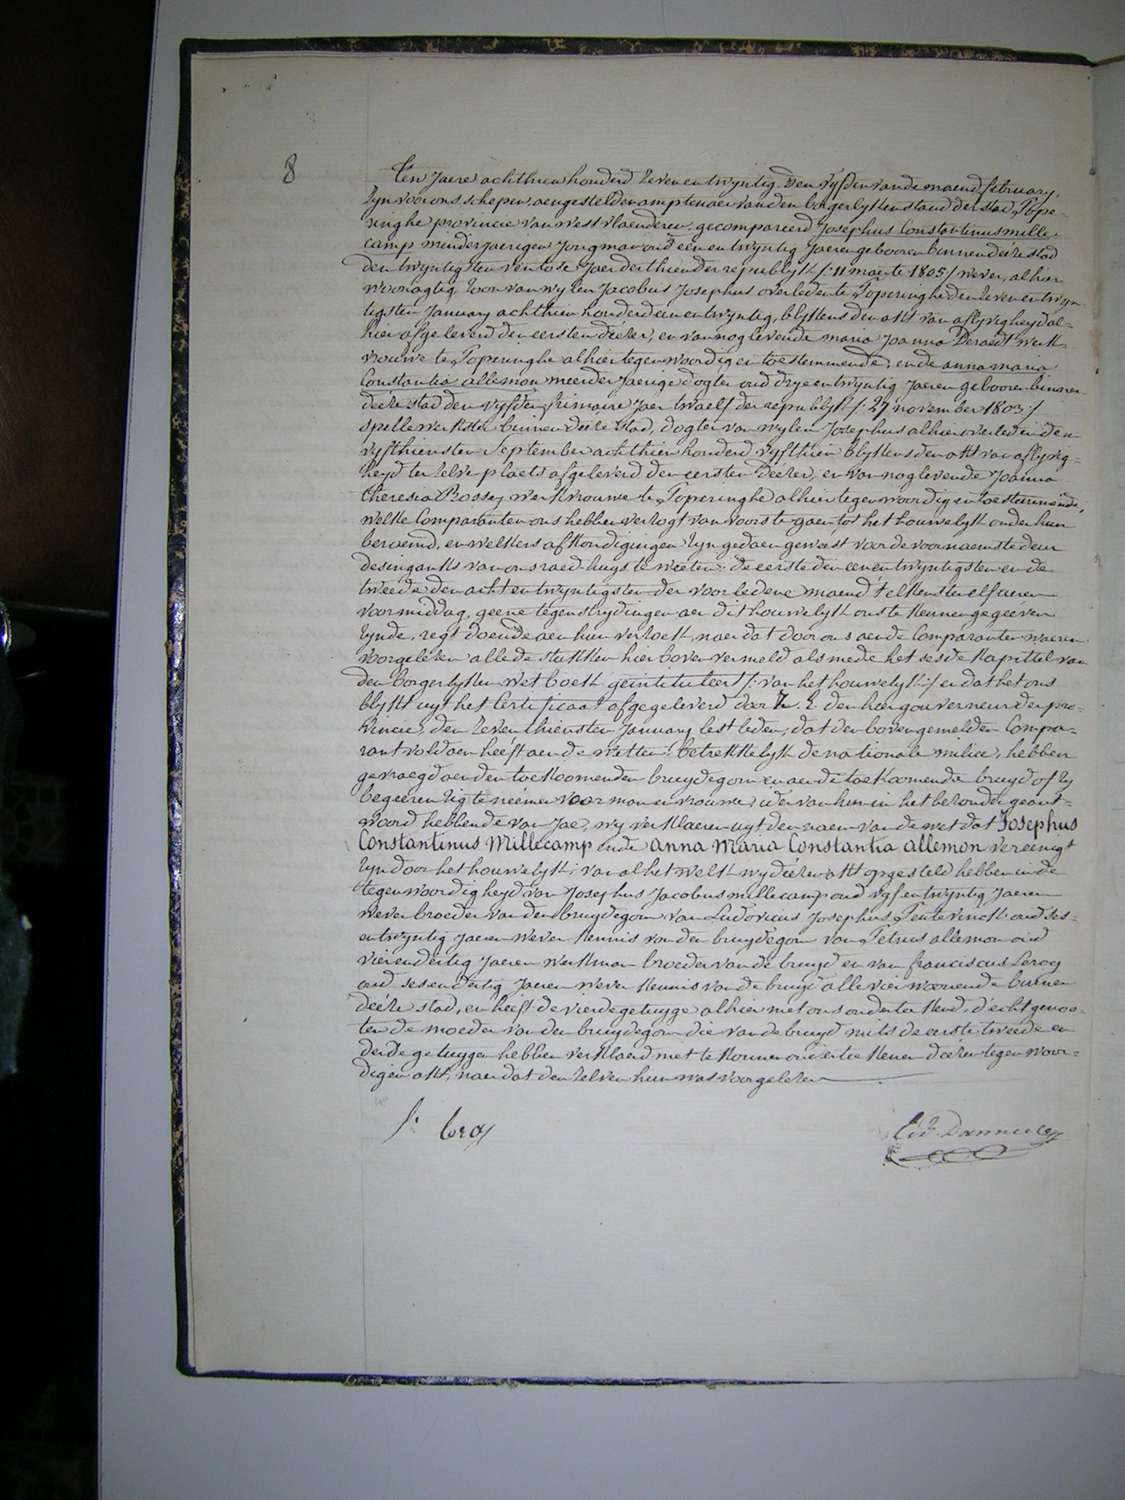 8
Ten Jaere achthien honderd zeven en twyntig den vyfden van de maend february,
zyn voor ons schepen, aengestelden amptenaer van den borgerlyken stand der stad Pope-
ringhe provincie van west vlaenderen, gecompareerd Josephus Constantinus mille-
camp minderjaerigen jongman oud een en twyntig jaeren gebooren binnen deéze stad
den twyntigsten ventose jaer derthien der republyk /: 11 maerte 1805 :/ wever, alhier
woonagtig zoon van wylen Jacobus Josephus overleden te Poperinghe den zeven en twyn-
tigsten January achthien honderd een en twyntig, blykens den akt van aflyvigheyd al-
hier afgeleverd den eersten deézer, en van nog levende maria Joanna Deraedt werk-
vrouwe te Poperinghe alhier tegenwoordig en toestemmende; ende anna maria
Constantia allemon meerderjaerige dogter oud drye en twyntig jaeren gebooren binnen
deéze stad den vyfden frimaire jaer twaelf der republyk /: 27 november 1803 :/
spellewerkster binnen deeze stad, dogter van wylen Josephus alhier overleden den
vyfthiensten September achthien honderd vyfthien blykens den akt van aflyvig-
heyd ter zelve plaets afgeleverd den eersten deézer, en van nog levende Joanna
theresia Bossey werkvrouwe te Poperinghe alhier tegenwoordig en toestemmende,
welke Comparanten ons hebben verzogt van voors te gaen tot het houwelyk onder hun
beraemd, en welkers afkondigingen zyn gedaen geweest voor de voornaemste deur
des ingank van ons raed-huys te weeten: de eerste den een en twyntigsten en de
tweede den acht en twyntigsten der voorledene maend t'elkens ten elf ueren
voormiddag, geene tegenstrydingen aen dit houwelyk ons te kennen gegeeven
zynde, regt doende aen hun verzoek, naer dat door ons aen de Comparanten waeren
voorgelezen alle de stukken hier boven vermeld als mede het sesde kapittel van
den borgerlyken wet boek geintituleert /: van het houwelyk :/ en dat het ons
blykt uyt het Certificaet afgegeleverd door z. E. den heer gouverneur der pro-
vincie, den zeventhiensten January lest leden, dat den bovengemelden Compa-
rant voldaen heeft aen de wetten betrekkelyk de nationale milice, hebben
gevraegd aen den toekoomenden bruydegom en aen de toekoomende bruyd of zy
begeeren zig te neémen voor man en vrouwe; ider van hun in het bezonder geant-
woord hebbende van Jae, wy verklaeren uyt den naem van de wet dat Josephus
Constantinus Millecamp ende anna Maria Constantia allemon vereenigt
zyn door het houwelyk; van al het welk wy deézen akt opgesteld hebben in de
tegenwoordigheyd van Josephus Jacobus millecamp oud vyf en twyntig jaeren
wever broeder van den bruydegom, van Ludovicus Josephus Feutevinck oud ses-
en twyntig jaeren wever kennis van den bruydegom van Petrus allemon oud
vier en dertig jaeren werkman broeder van de bruyd en van franciscus Leroy
oud ses en dertig jaeren wever kennis van de bruyd alle vier woonende binnen
deéze stad, en heeft de vierde getuyge alhier met ons onderteekend, d'echtgenoo-
ten de moeder van den bruydegom die van de bruyd mits de eerste tweede en
derde getuygen hebben verklaerd niet te konnen onderteekenen deézen tegenwoor-
digen akt, naer dat den zelven hun was voorgelezen
f: leroy